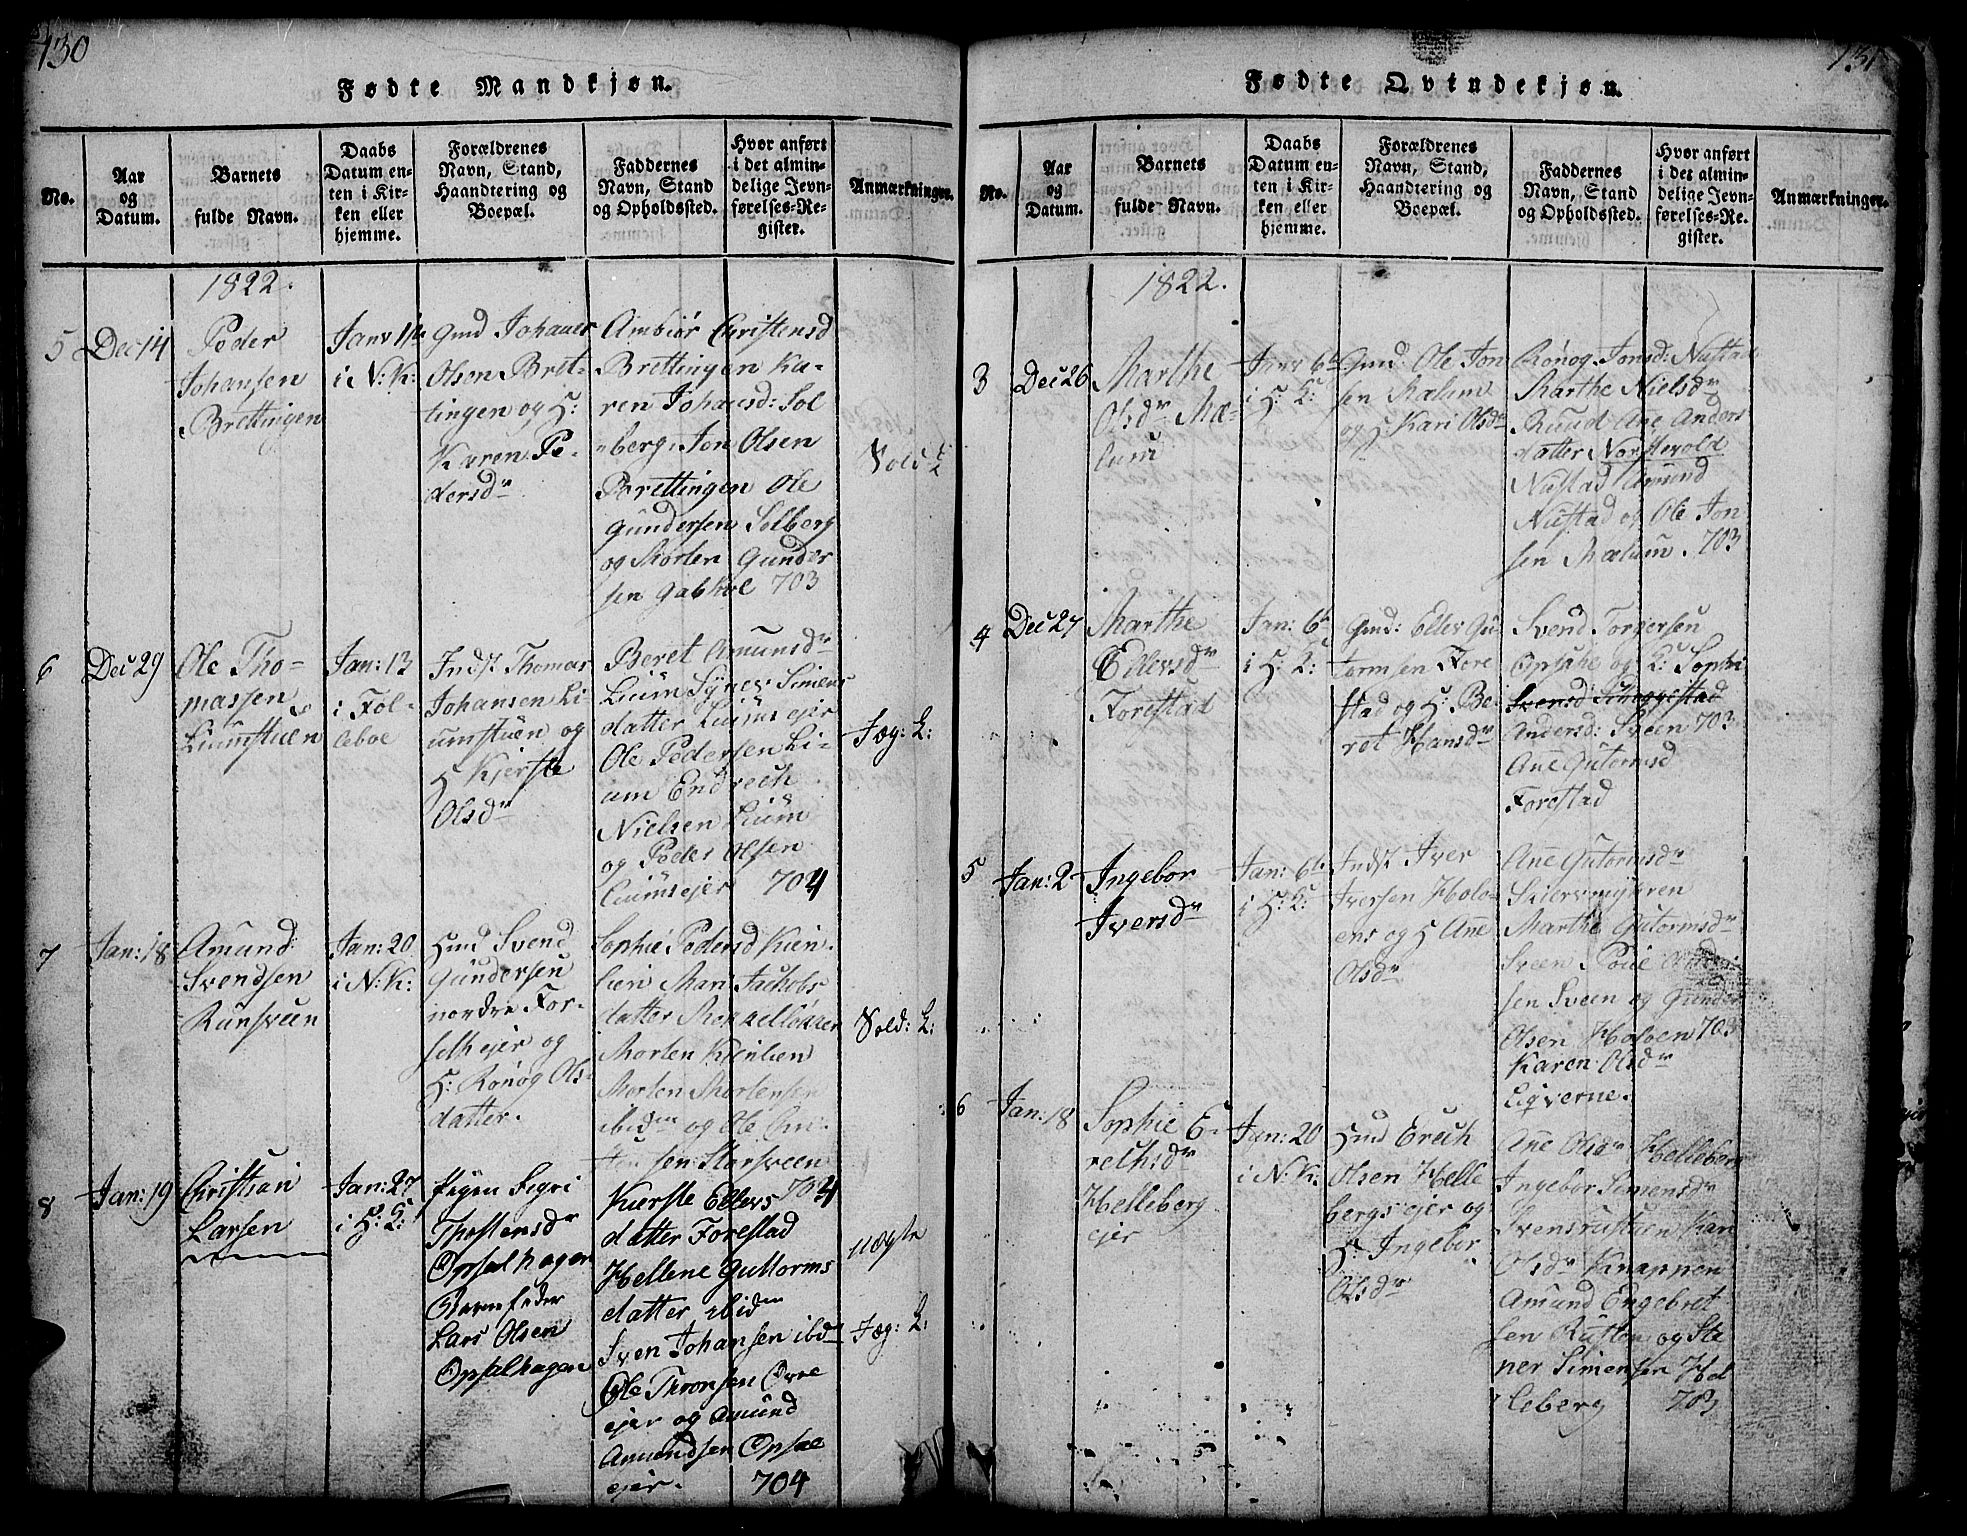 130
Fødte Mandkjøn.
No.
Aar
og
Datum.
Barnets
fulde Navn.
Daabs
Datum en-
ten i Kir-
ken eller
hjemme.
Forældrenes
Navn, Stand,
Haandtering og
Boepæl.
Faddernes
Navn, Stand
og Opholdssted.
Hvor anført
i det almin-
delige Jevn-
førelses-Re-
gister.
Anmærkninger.
1822.
5
Dec 14
Peder
Johansen
Brettingen
Janv
i N: K:
Gmd Johanes
Olsen Bret-
tingen og H:
Karen Pe-
dersdr
Ambiør Christensd
Brettingen Ka-
ren Johansd: Sol
berg, Jon Olsen
Brettingen Ole
Gundersen Solberg
og Morten Gunder
sen 703
6
Dec 29
Ole Tho-
massen
Liumstuen
Jan: 13
i Fol-
leboe
Indst Thomas
Johansen Li-
umstuen og
H Kjerste
Olsdr
Beret Amundsdr
Lium Synev Simens
datter Liums ejer
Ole Pedersen Li-
um Endrech
Nielsen Lium
og Peder Olsen
Liumsejer 704
Jæg: L:
7
Jan: 18
Amund
Svendsen
Runsveen
Jan: 20
i N: K:
Huusmd Svend
Gundersen
nordre For-
ejer og
H: Rønog Ols-
datter.
Sophie Pedersd Kien-
lien Mari Jachobs
datter
Morten Kienlien
Morten Mortensen
ibidm og Ole
sen Storsveen
704
Sold: L:
8
Jan: 19
Christian
Larsen
Jan: 27
i H: L:
Pigen Sigri
Thostensdr
Opsalhagen
Barnefader
Lars Olsen
Opsalhagen
Kierste Ellevs
datter Forestad
Hellene Guttorms
datter ibidm
Sven Johansen ibdm
Ole Thronsen Øvre
ejer og Amund
Amundsen Opsal
ejer. 704
uægte
Jæg: L:
131
Fødte Qvindekjøn.
No.
Aar
og
Datum.
Barnets
fulde Navn.
Daabs
Datum en-
ten i Kir-
ken eller
hjemme.
Forældrenes
Navn, Stand,
Haandtering og
Boepæl.
Faddernes
Navn, Stand
og Opholdssted.
Hvor anført
i det almin-
delige Jevn-
førelses-Re-
gister.
Anmærkninger.
1822.
3
Dec 26
Marthe
Olsdr Mæ-
lum
Janv 6te
i H: L:
Gmd: Ole Jon
sen Mælum
og H Kari Olsdr
Rønog Jonsd: Nustad
Marthe Nielsdr
Ruud Ane Anders
datter
Nustad Amund
Nustad og Ole Jon
sen Mælum. 703
4
Dec 27
Marthe
Ellevsdr
Forestad
Jan: 6te
i H: L:
Gmd: Ellev Gu
tormsen Fore
stad og H: Be-
ret Hansdr
Svend Torgersen
og K: Sophi
Andersd: Sveen 703
Ane Gutormsd
Forestad
5
Jan: 2
Ingebor
Iversdr
Jan: 6te
i H: L:
Indst Iver
Iversen Holo-
ens og H Ane
Olsdr
Ane Gutormsdr
Marthe Gutormsdr
Sveen
sen Sveen og Gunder
Olsen Holoen 703
Karen Olsdr
6
Jan: 18
Sophie E-
rechsdr
Helleberg
ejer
Jan: 20
i N: K:
Huusmd Erech
Olsen Helle
bergsejer og
H: Ingebor
Olsdr
Ane Olsdr Helleberg
Ingebor Simensdr
Kari
Olsdr Knappen
Amund Engebret
sen Rusten og Ste
ner Simensen Hel
leberg 703